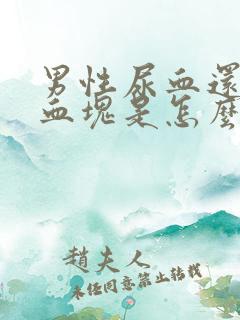 男性尿血還
血塊是怎麼
趙夫人
未经同意禁止转载